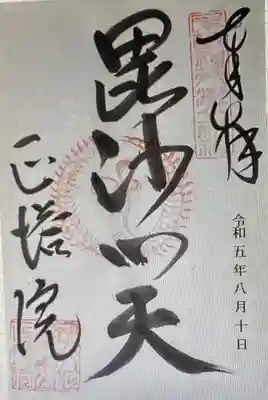 奉拝
毘沙門天
令和五年八月十日
正塔院